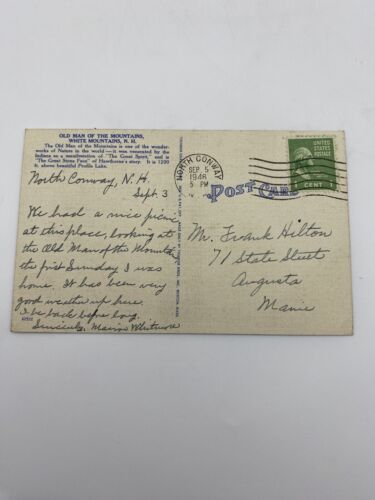 OLD MAN OF THE MOUNTAINS,
WHITE MOUNTAINS, N. H.
The Old Man of the Mountains is one of the wonder-
works of Nature in the world — it was venerated by the
Indians as a manifestation of "The Great Spirit," and is
"The Great Stone Face" of Hawthorne's story. It is 1200
ft. above beautiful Profile Lake.
North Conway, N.H.
Sept. 3
We had a nice picnic
at this place, looking at
the Old Man of the Mountain
the first Sunday I was
home. It has been very
good weather up here.
I'll be back before long.
Sincerely, Marion Whitmore
NORTH CONWAY
SEP 5
5 PM
1946
N. H.
POST CARD
UNITED STATES
POSTAGE
1 CENT 1
Mr. Frank Hilton
71 State Street
Augusta
Maine